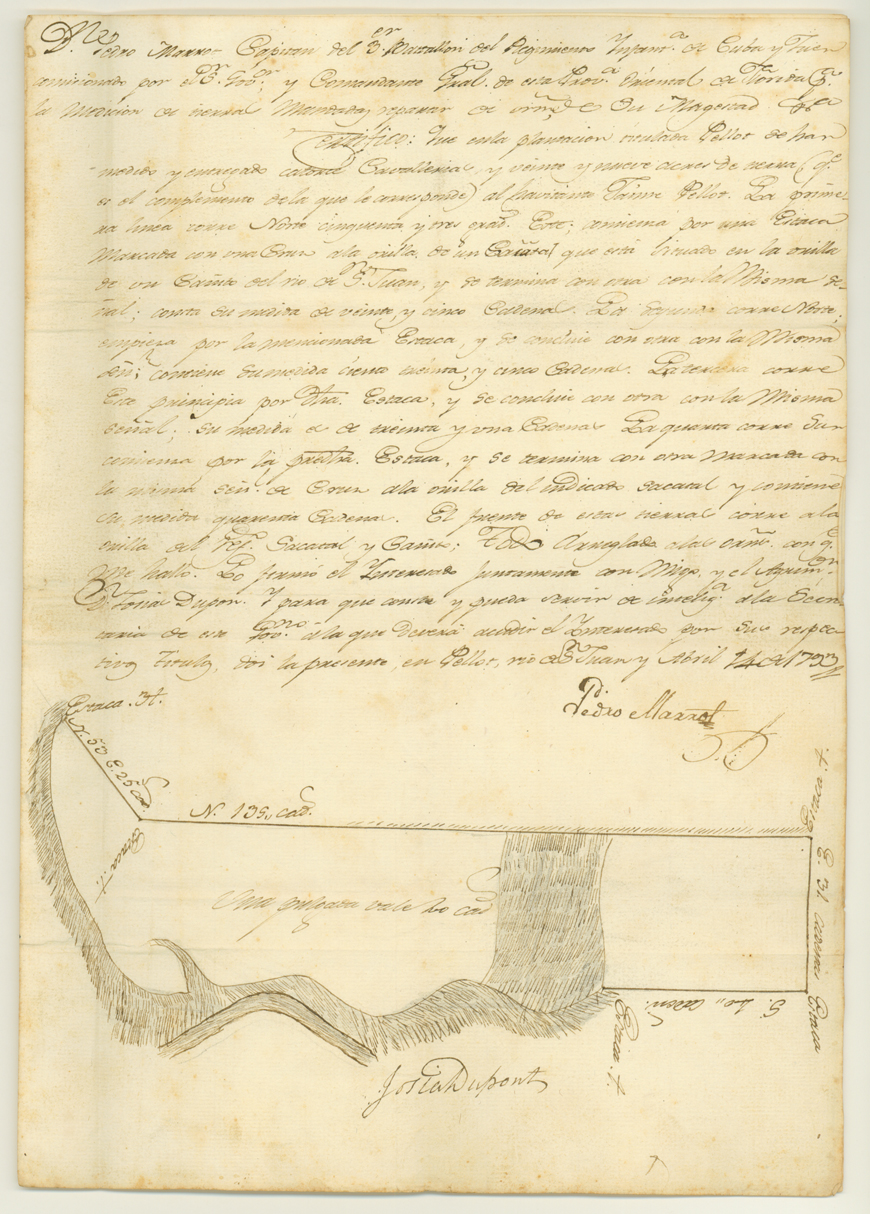 Dn. Pedro Marrot Capitan del 3.er Batallon del Regimiento Infant.a de Cuba y Juez
comicionado por el S.or Gov.or y Comandante Gral. de esta Prov.a Oriental de Florida p.a
la Medicion de tierras Mandadas repartir de orn. de Su Magestad &.a
Certifico: Que en la plantacion titulada Pellot se han
medido y entregado catorce Cavallerias, y veinte y nueve acres de tierra (q.e
es el complemento de la que le corresponde) al havitante Jaime Pellot. La prime-
ra linea corre Norte cinquenta y tres grad.s Este; comiensa por una Estaca
Marcada con una Cruz a la orilla de un que está situado en la orilla
de un Cañito del rio de S.n Juan, y se termina con otra con la Misma se-
ñal; consta su medida de veinte y cinco Cadenas. La Segunda corre Norte;
empieza por la mencionada Estaca, y se concluie con otra con la Misma
señ.l; contiene su medida ciento treinta y cinco Cadenas. La tercera corre
Este principia por dha. Estaca, y se concluie con otra con la Misma
señal; su medida es de treinta y una Cadenas. La quarta corre Sur
comiensa por la predha. Estaca, y se termina con otra Marcada con
la misma señ.l de Cruz a la orilla del indicado sacatal y contiene
su medida quarenta Cadenas. El frente de estas tierras corre a la
orilla del Sacatal y Cañito; Todo Arreglado a las orns. con q.e
me hallo. Lo firmó el Interesado juntamente con Migo, y el Agrim.or
Dn. Josia Dupon. Y para que conste y pueda servir de intelig.a a la Secre-
taria de este Gov.no á la que deverá acudir el Interesado por su respec-
tivo titulo, doi la presente, en Pellot, rio de S.n Juan y Abril 14 de 1793
Pedro Marrot
Estaca. †.
N. 53 E. 25 cad.
N. 135,, cad.s
Estaca †.
Estaca †.
E. 31 cadenas
Una pulgada vale 20 cad.s
S. 40,, caden.s
Estaca
Estaca. †.
Josia Dupont